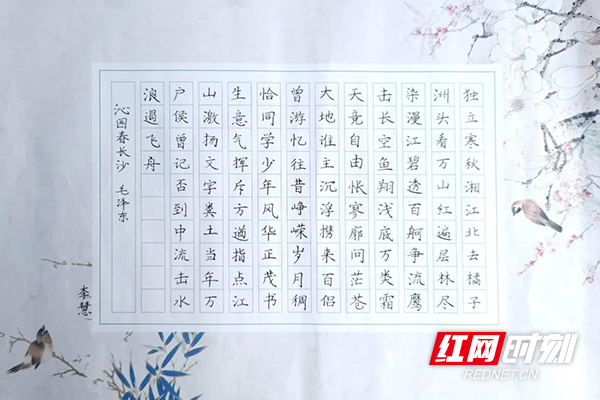 独立寒秋湘江北去橘子
洲头看万山红遍层林尽
染漫江碧透百舸争流鹰
击长空鱼翔浅底万类霜
天竟自由怅寥廓问茫苍
大地谁主沉浮携来百侣
曾游忆往昔峥嵘岁月稠
恰同学少年风华正茂书
生意气挥斥方遒指点江
山激扬文字粪土当年万
户侯曾记否到中流击水
浪遏飞舟
沁园春长沙 毛泽东
李慧
红网时刻
REDNET.CN